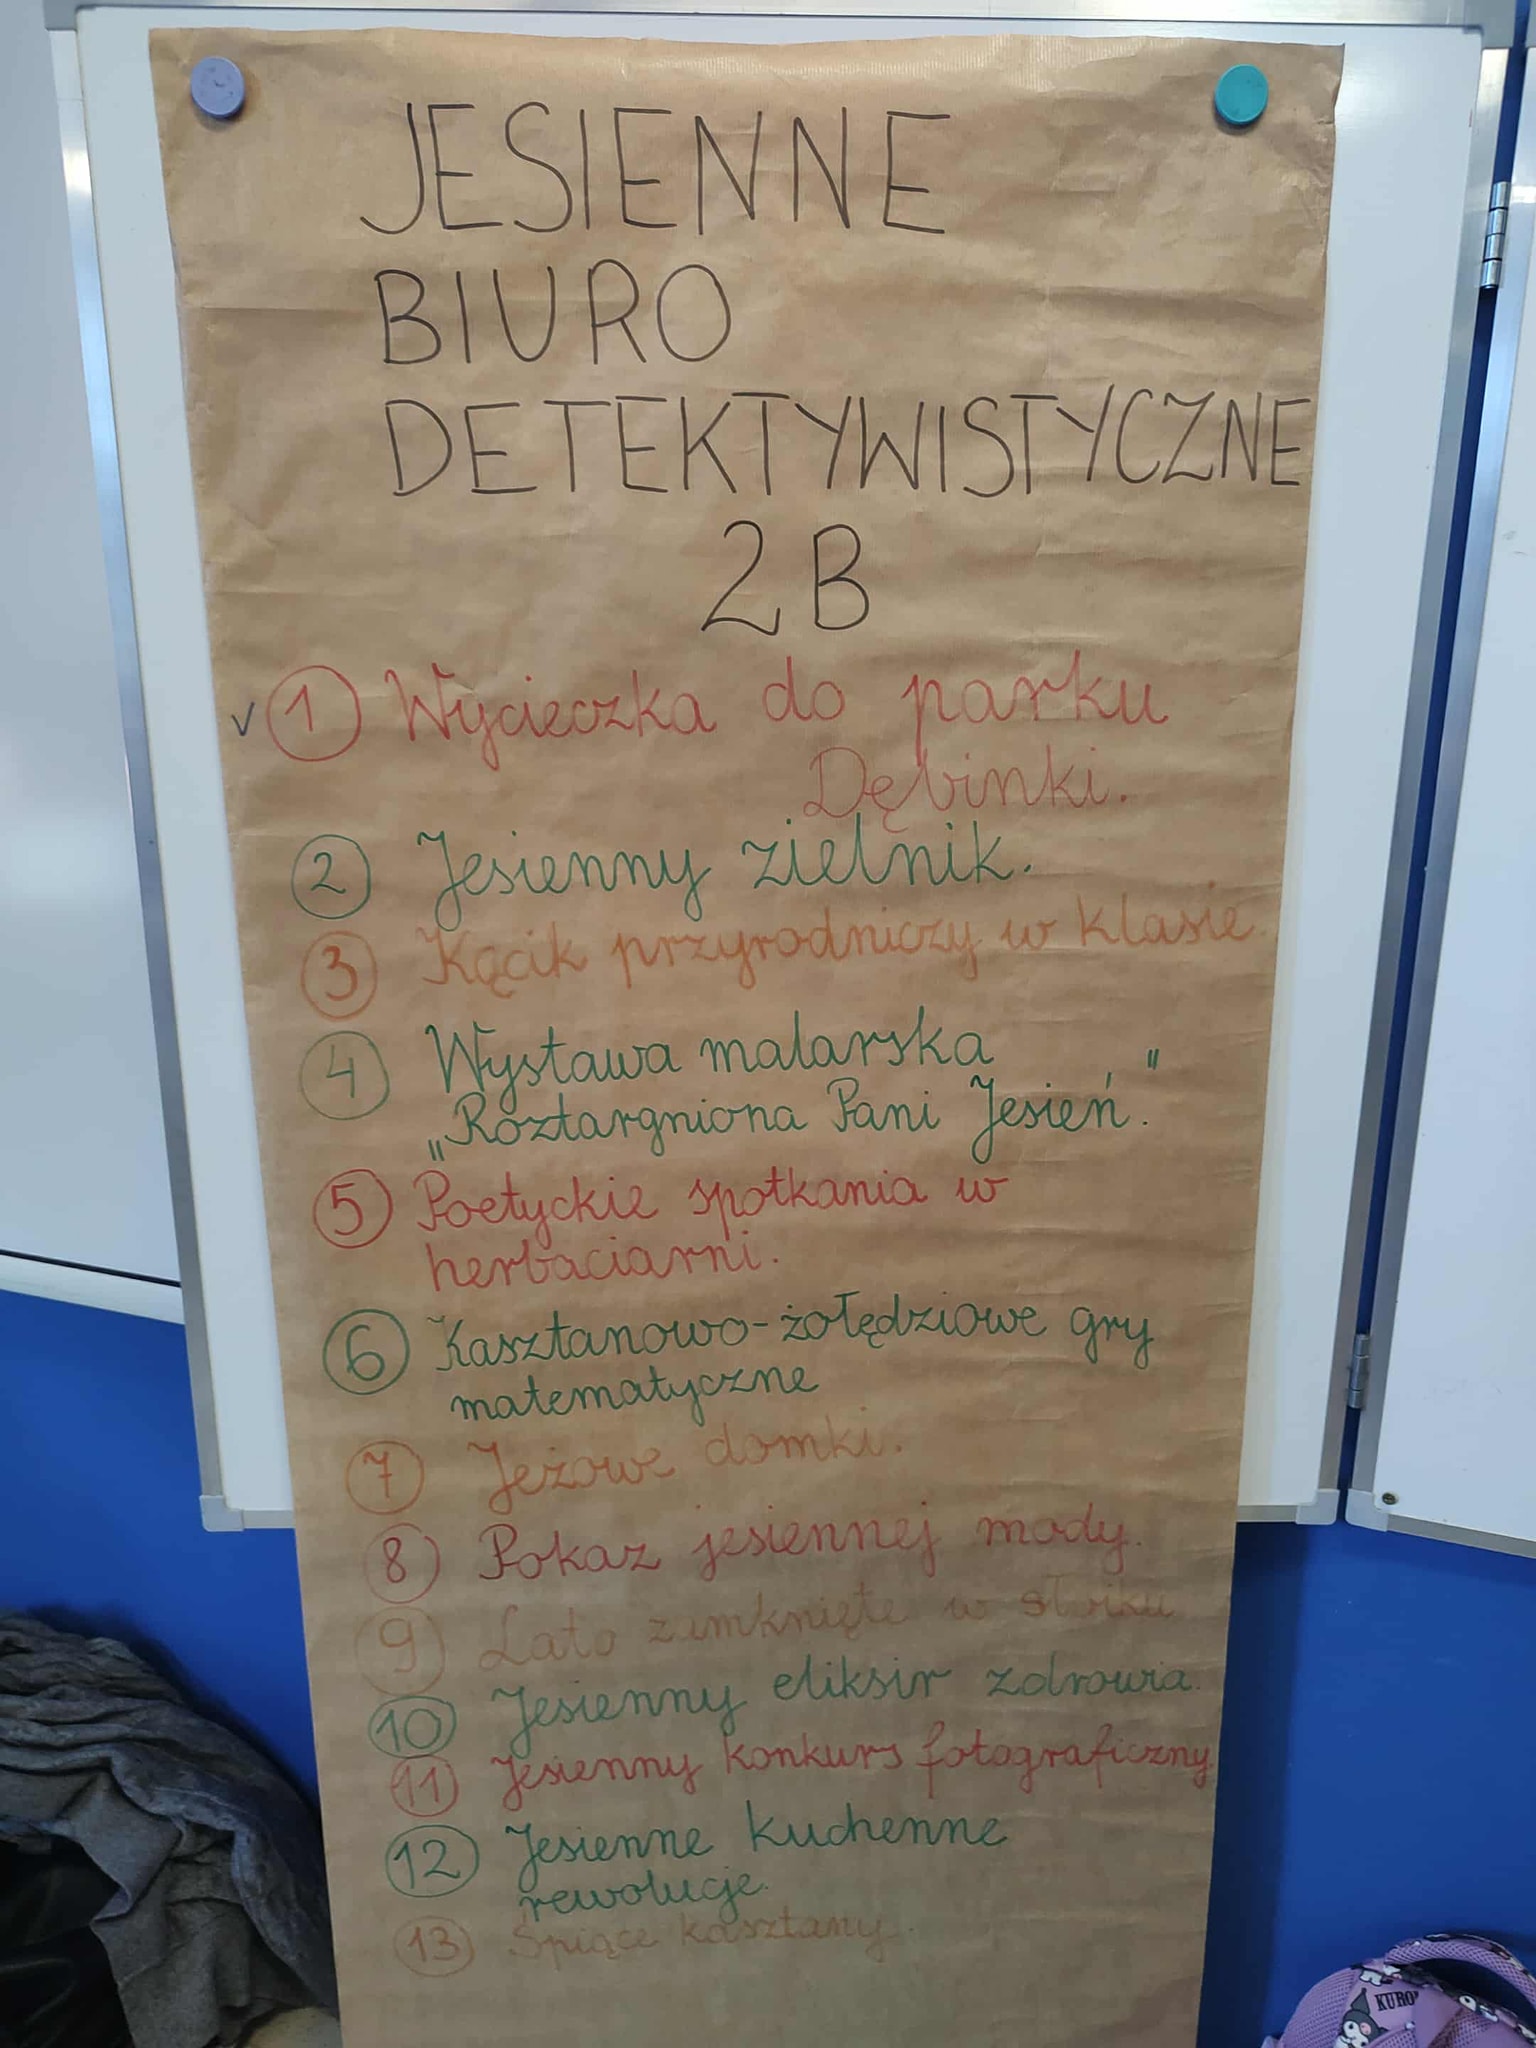 JESIENNE
BIURO
DETEKTYWISTYCZNE
2B
v 1 Wycieczka do parku
Dębinki.
2 Jesienny zielnik.
3 Kącik przyrodniczy w klasie.
4 Wystawa malarska
„Roztargniona Pani Jesień."
5 Poetyckie spotkania w
herbaciarni.
6 Kasztanowo-żołędziowe gry
matematyczne
7 Jeżowe domki.
8 Pokaz jesiennej mody.
9 Lato zamknięte w słoiku
10 Jesienny eliksir zdrowia.
11 Jesienny konkurs fotograficzny.
12 Jesienne kuchenne
rewolucje.
13 Śpiące kasztany.